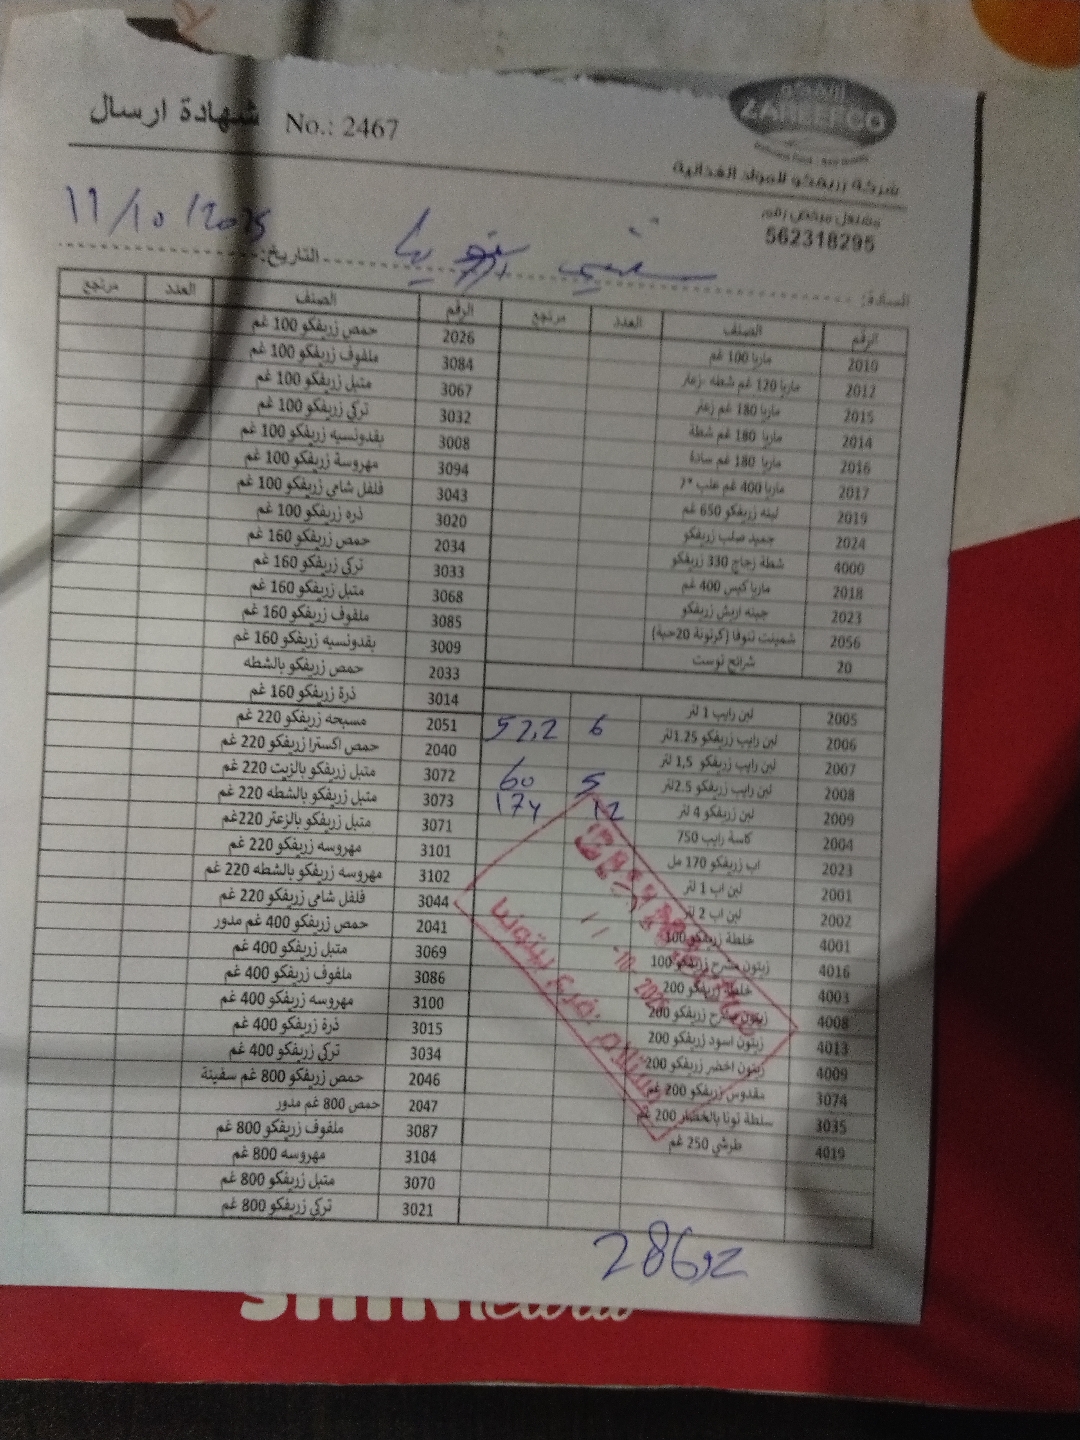 شهادة ارسال No.: 2467
ZAREEFCO
شركة زريفكو للمواد الغذائية
مشتغل مرخص رقم
562318295
السادة: التاريخ: 11/10/2025
الرقم الصنف العدد مرتجع
2010 ماريا 100 غم
2012 ماريا 120 غم شطه -زعتر
2015 ماريا 180 غم زعتر
2014 ماريا 180 غم شطة
2016 ماريا 180 غم سادة
2017 ماريا 400 غم علب 7*
2019 لبنه زريفكو 650 غم
2024 جميد صلب زريفكو
4000 شطة زجاج 330 زريفكو
2018 ماريا كيس 400 غم
2023 جبنه اريش زريفكو
2056 شمينت تنوفا (كرتونة 20حبة)
20 شرائح توست
2005 لبن رايب 1 لتر
2006 لبن رايب زريفكو 1.25لتر 6 52,2
2007 لبن رايب زريفكو 1,5 لتر
2008 لبن رايب زريفكو 2.5لتر 5 60
2009 لبن زريفكو 4 لتر 12 174
2004 كاسة رايب 750
2021 اب زريفكو 170 مل
2001 لبن اب 1 لتر
2002 لبن اب 2 لتر
4001 خلطة زريفكو 100
4016 زيتون مشرح زريفكو 100
4003 خلطة زريفكو 200
4008 زيتون مشرح زريفكو 200
4013 زيتون اسود زريفكو 200
4009 زيتون اخضر زريفكو 200
3074 مقدوس زريفكو 200 غم
3035 سلطة تونا بالخضار 200 غم
4019 طرشي 250 غم
الرقم الصنف العدد مرتجع
2026 حمص زريفكو 100 غم
3084 ملفوف زريفكو 100 غم
3067 متبل زريفكو 100 غم
3032 تركي زريفكو 100 غم
3008 بقدونسيه زريفكو 100 غم
3094 مهروسة زريفكو 100 غم
3043 فلفل شامي زريفكو 100 غم
3020 ذره زريفكو 100 غم
2034 حمص زريفكو 160 غم
3033 تركي زريفكو 160 غم
3068 متبل زريفكو 160 غم
3085 ملفوف زريفكو 160 غم
3009 بقدونسيه زريفكو 160 غم
2033 حمص زريفكو بالشطه
3014 ذرة زريفكو 160 غم
2051 مسبحه زريفكو 220 غم
2040 حمص اكسترا زريفكو 220 غم
3072 متبل زريفكو بالزيت 220 غم
3073 متبل زريفكو بالشطه 220 غم
3071 متبل زريفكو بالزعتر 220غم
3101 مهروسه زريفكو 220 غم
3102 مهروسه زريفكو بالشطه 220 غم
3044 فلفل شامي زريفكو 220 غم
2041 حمص زريفكو 400 غم مدور
3069 متبل زريفكو 400 غم
3086 ملفوف زريفكو 400 غم
3100 مهروسه زريفكو 400 غم
3015 ذرة زريفكو 400 غم
3034 تركي زريفكو 400 غم
2046 حمص زريفكو 800 غم سفينة
2047 حمص 800 غم مدور
3087 ملفوف زريفكو 800 غم
3104 مهروسه 800 غم
3070 متبل زريفكو 800 غم
3021 تركي زريفكو 800 غم
11 -10- 2025
استلام فرع بيتونيا
286,2